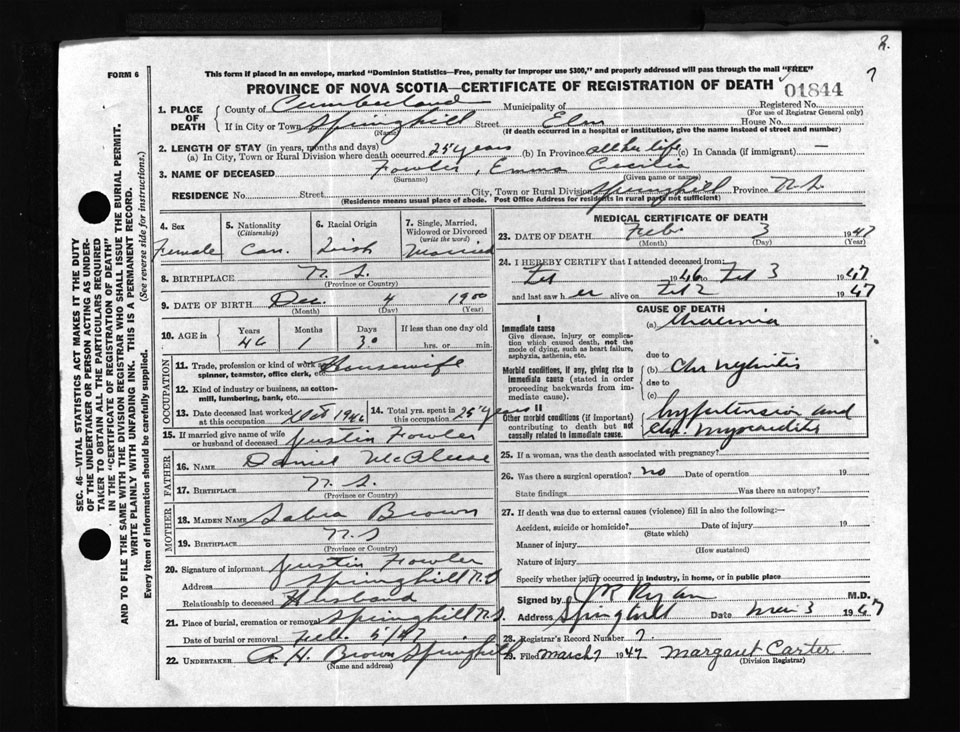 2.
7
FORM 6
This form if placed in an envelope, marked "Dominion Statistics—Free, penalty for improper use $300," and properly addressed will pass through the mail "FREE"
PROVINCE OF NOVA SCOTIA—CERTIFICATE OF REGISTRATION OF DEATH
01844
1. PLACE OF DEATH
County of Cumberland Municipality of Registered No.
(For use of Registrar General only)
If in City or Town Springhill Street Elm House No.
(Name) (If death occurred in a hospital or institution, give the name instead of street and number)
2. LENGTH OF STAY (in years, months and days)
(a) In City, Town or Rural Division where death occurred 25 years (b) In Province all her life (c) In Canada (if immigrant) —
3. NAME OF DECEASED Fowler, Emma Cecilia
(Surname) (Given name or names)
RESIDENCE No. Street City, Town or Rural Division Springhill Province N.S.
(Residence means usual place of abode. Post Office Address for residents in rural parts not sufficient)
4. Sex
Female
5. Nationality (Citizenship)
Can.
6. Racial Origin
Irish
7. Single, Married, Widowed or Divorced (write the word)
Married
8. BIRTHPLACE N.S.
(Province or Country)
9. DATE OF BIRTH Dec. 4 1900
(Month) (Day) (Year)
10. AGE in
Years Months Days If less than one day old
46 1 30 hrs. or min.
OCCUPATION
11. Trade, profession or kind of work as spinner, teamster, office clerk, etc. Housewife
12. Kind of industry or business, as cotton-mill, lumbering, bank, etc.
13. Date deceased last worked at this occupation Oct 1946
14. Total yrs. spent in this occupation 25 years
15. If married give name of wife or husband of deceased Justin Fowler
FATHER
16. NAME Daniel McAleese
17. BIRTHPLACE N.S.
(Province or Country)
MOTHER
18. MAIDEN NAME Sabra Brown
19. BIRTHPLACE N.S
(Province or Country)
20. Signature of informant Justin Fowler
Address Springhill N.S
Relationship to deceased Husband
21. Place of burial, cremation or removal Springhill N.S.
Date of burial or removal Feb. 5/47
22. UNDERTAKER A. H. Brown Springhill
(Name and address)
MEDICAL CERTIFICATE OF DEATH
23. DATE OF DEATH Feb. 3 1947
(Month) (Day) (Year)
24. I HEREBY CERTIFY that I attended deceased from:
Feb 1946 to Feb 3 1947
and last saw her alive on Feb 2 1947
CAUSE OF DEATH
I
Immediate cause
Give disease, injury or complication which caused death, not the mode of dying, such as heart failure, asphyxia, asthenia, etc.
(a) Uraemia
due to
Morbid conditions, if any, giving rise to immediate cause (stated in order proceeding backwards from immediate cause).
(b) Chr nephritis
due to
(c)
II
Other morbid conditions (if important) contributing to death but not causally related to immediate cause.
hypertension and
chr. myocarditis
25. If a woman, was the death associated with pregnancy?
26. Was there a surgical operation? no Date of operation 19
State findings Was there an autopsy?
27. If death was due to external causes (violence) fill in also the following:—
Accident, suicide or homicide? Date of injury 19
(State which)
Manner of injury
(How sustained)
Nature of injury
Specify whether injury occurred in industry, in home, or in public place
Signed by J R Ryan M.D.
Address Springhill Date Mar 3 1947
28. Registrar's Record Number 7.
29. Filed March 7 1947 Margaret Carter
(Division Registrar)
SEC. 46—VITAL STATISTICS ACT MAKES IT THE DUTY
OF THE UNDERTAKER OR PERSON ACTING AS UNDER-
TAKER TO OBTAIN ALL THE PARTICULARS REQUIRED
IN THE "CERTIFICATE OF REGISTRATION OF DEATH"
AND TO FILE THE SAME WITH THE DIVISION REGISTRAR WHO SHALL ISSUE THE BURIAL PERMIT.
WRITE PLAINLY WITH UNFADING INK. THIS IS A PERMANENT RECORD.
Every item of information should be carefully supplied. (See reverse side for instructions.)